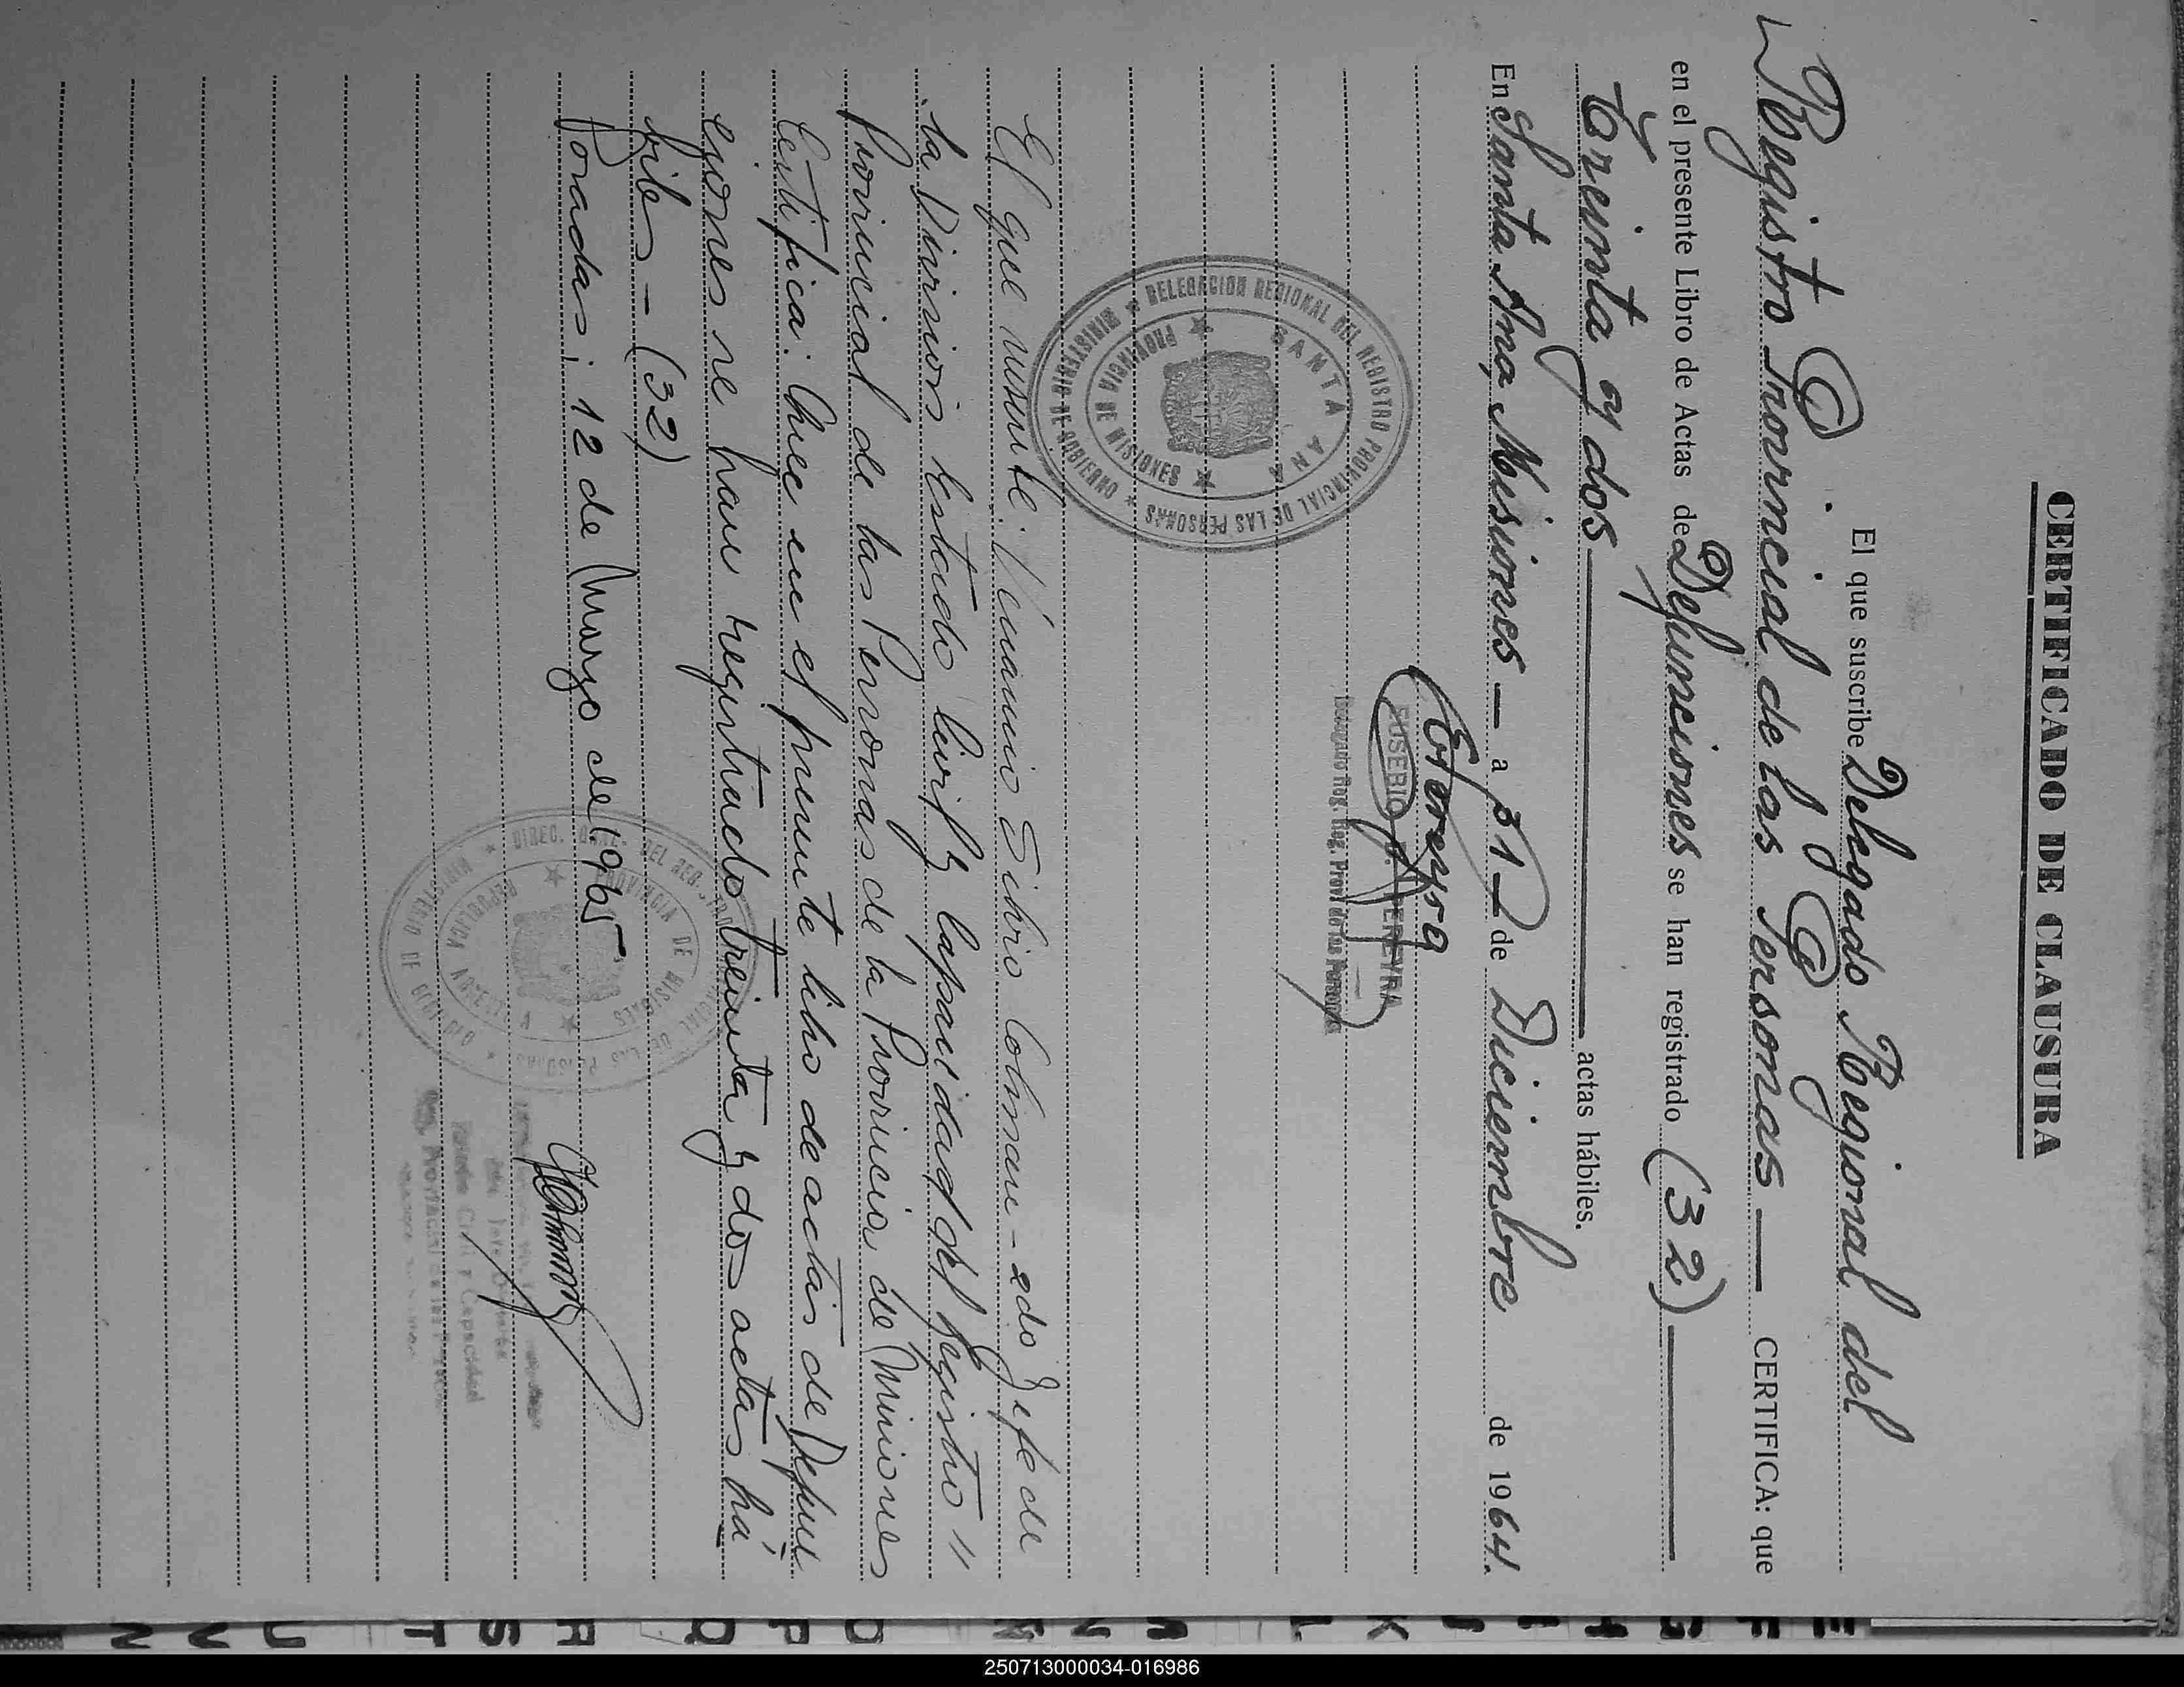 CERTIFICADO DE CLAUSURA
El que suscribe Delegado Regional del
Registro Provincial de las Personas — CERTIFICA: que
en el presente Libro de Actas de Defunciones se han registrado (32)
treinta y dos actas hábiles.
En Santa Ana, Misiones — a 31 de Diciembre de 1964.
EPereyra
EUSEBIO PEREYRA
Delegado Reg. Reg. Provl de las Personas
DELEGACION REGIONAL DEL REGISTRO PROVINCIAL DE LAS PERSONAS
MINISTERIO DE GOBIERNO
SANTA ANA
PROVINCIA DE MISIONES
El que suscribe: Venancio Colman - 2do Jefe de
la Division Estado Civil y Capacidad del Registro "
Provincial de las Personas de la Provincia de Misiones
Certifica: Que en el presente libro de actas de Defun
ciones se han registrado treinta y dos actas há
biles - (32)
Posadas; 12 de Marzo de 1965
DIREC. GRAL. DEL REG. PROVINCIAL DE LAS PERSONAS
MINISTERIO DE GOBIERNO
PROVINCIA DE MISIONES
REPUBLICA ARGENTINA
Estado Civil y Capacidad
Reg. Provincial de las Personas
E F G H I J K L M N Ñ O P Q R S T U V N
250713000034-016986